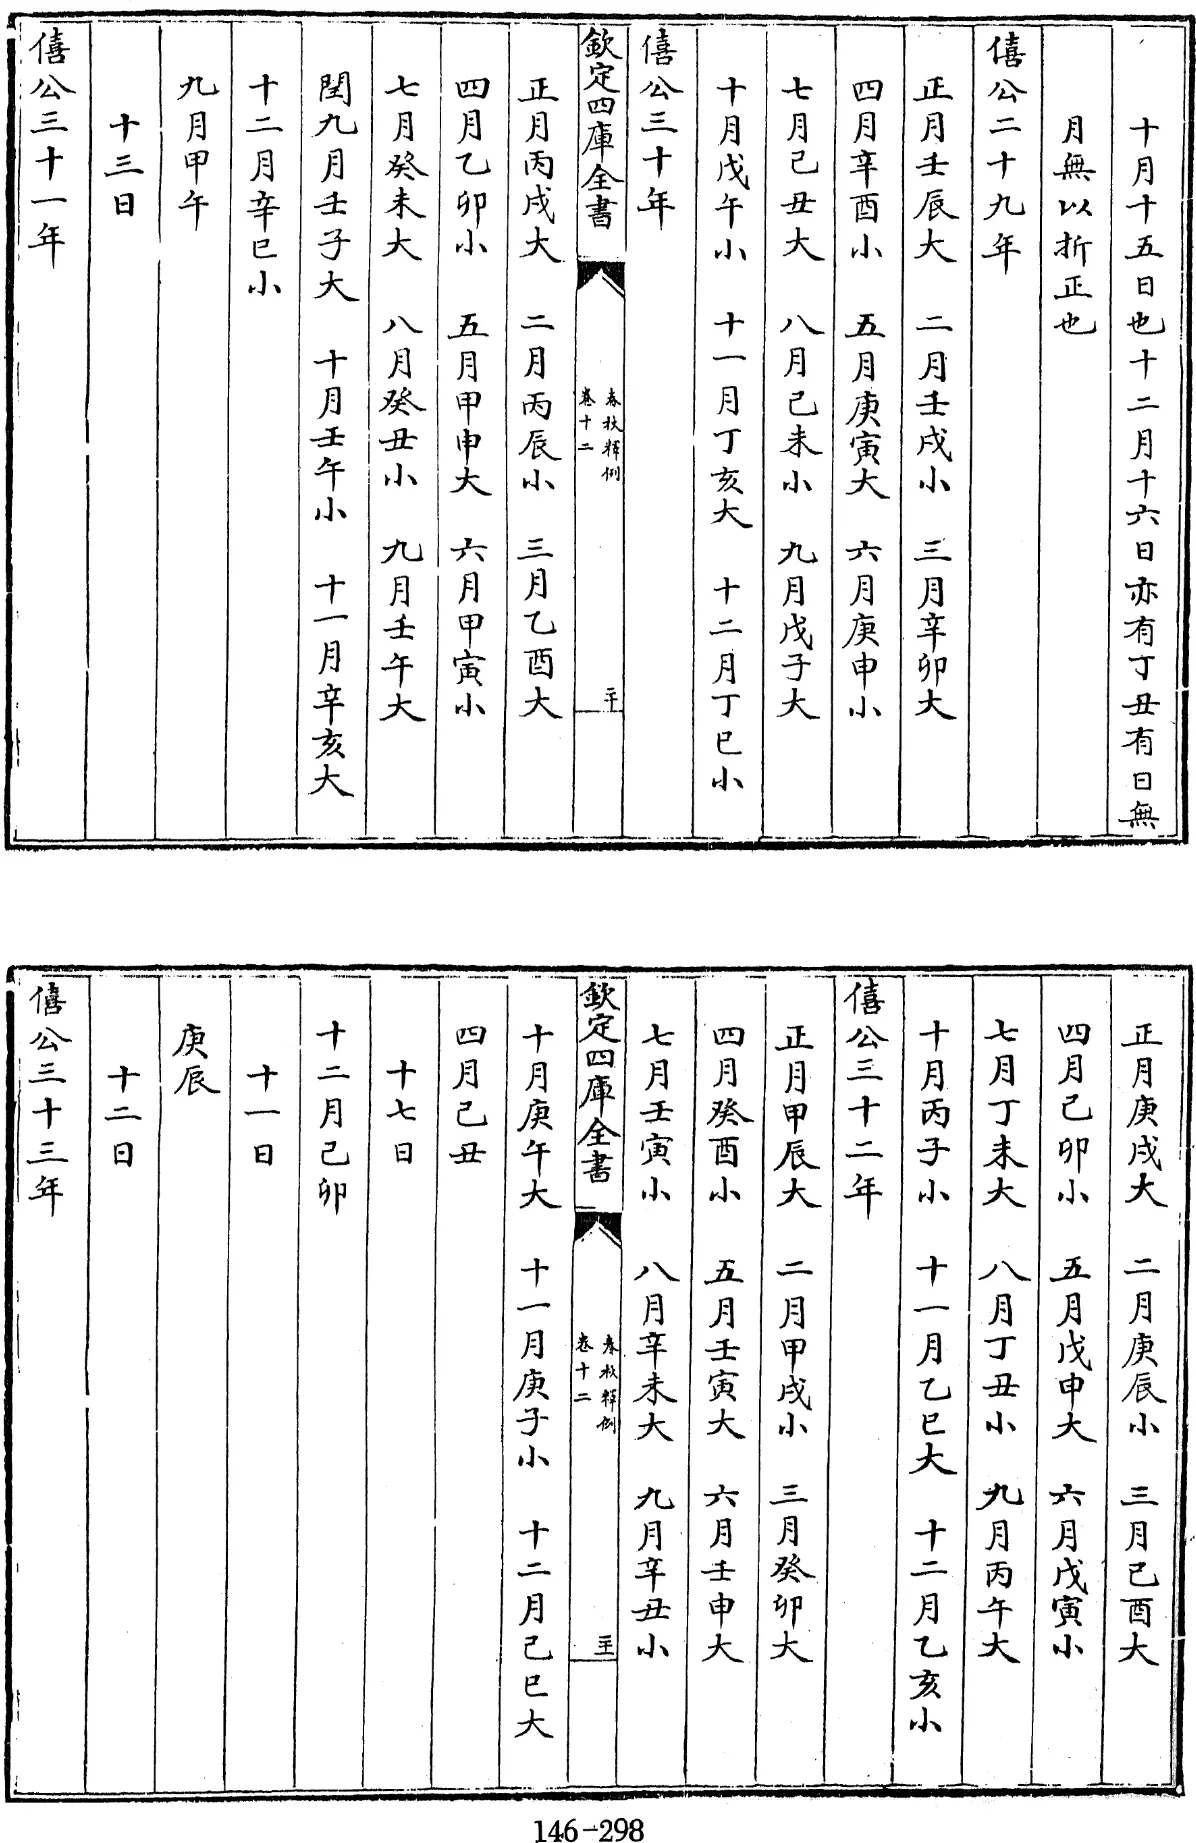 十月十五日也十二月十六日亦有丁丑有日無
月無以折正也
僖公二十九年
正月壬辰大 二月壬戌小 三月辛卯大
四月辛酉小 五月庚寅大 六月庚申小
七月己丑大 八月己未小 九月戊子大
十月戊午小 十一月丁亥大 十二月丁巳小
僖公三十年
欽定四庫全書 春秋釋例 卷十二 二十
正月丙戌大 二月丙辰小 三月乙酉大
四月乙卯小 五月甲申大 六月甲寅小
七月癸未大 八月癸丑小 九月壬午大
閏九月壬子大 十月壬午小 十一月辛亥大
十二月辛巳小
九月甲午
十三日
僖公三十一年
正月庚戌大 二月庚辰小 三月己酉大
四月己卯小 五月戊申大 六月戊寅小
七月丁未大 八月丁丑小 九月丙午大
十月丙子小 十一月乙巳大 十二月乙亥小
僖公三十二年
正月甲辰大 二月甲戌小 三月癸卯大
四月癸酉小 五月壬寅大 六月壬申大
七月壬寅小 八月辛未大 九月辛丑小
欽定四庫全書 春秋釋例 卷十二 二十一
十月庚午大 十一月庚子小 十二月己巳大
四月己丑
十七日
十二月己卯
十一日
庚辰
十二日
僖公三十三年
146-298